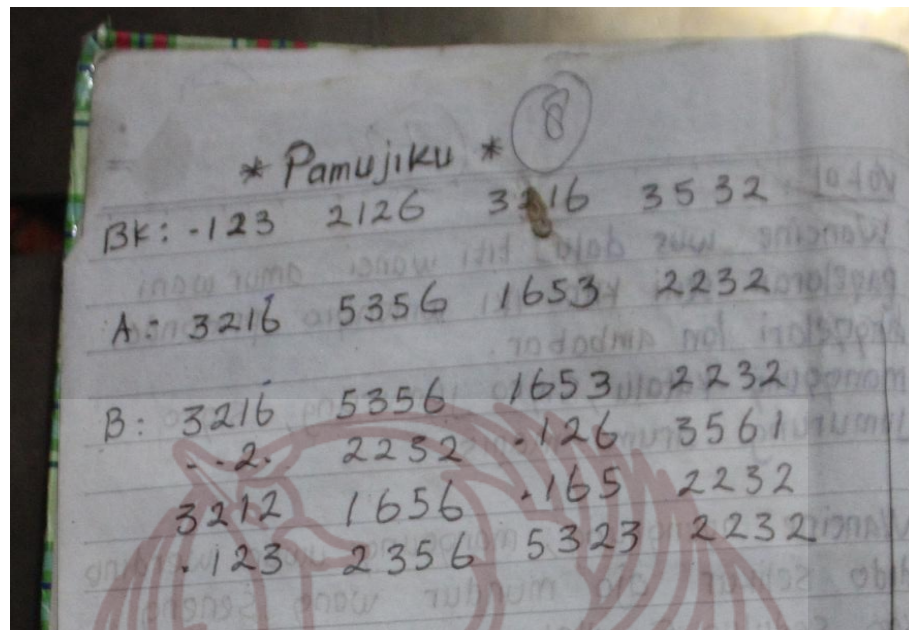 8
* Pamujiku *
BK: .123 2126 3216 3532
A: 3216 5356 1653 2232
B: 3216 5356 1653 2232
..2. 2232 .126 3561
3212 1656 .165 2232
.123 2356 5323 2232